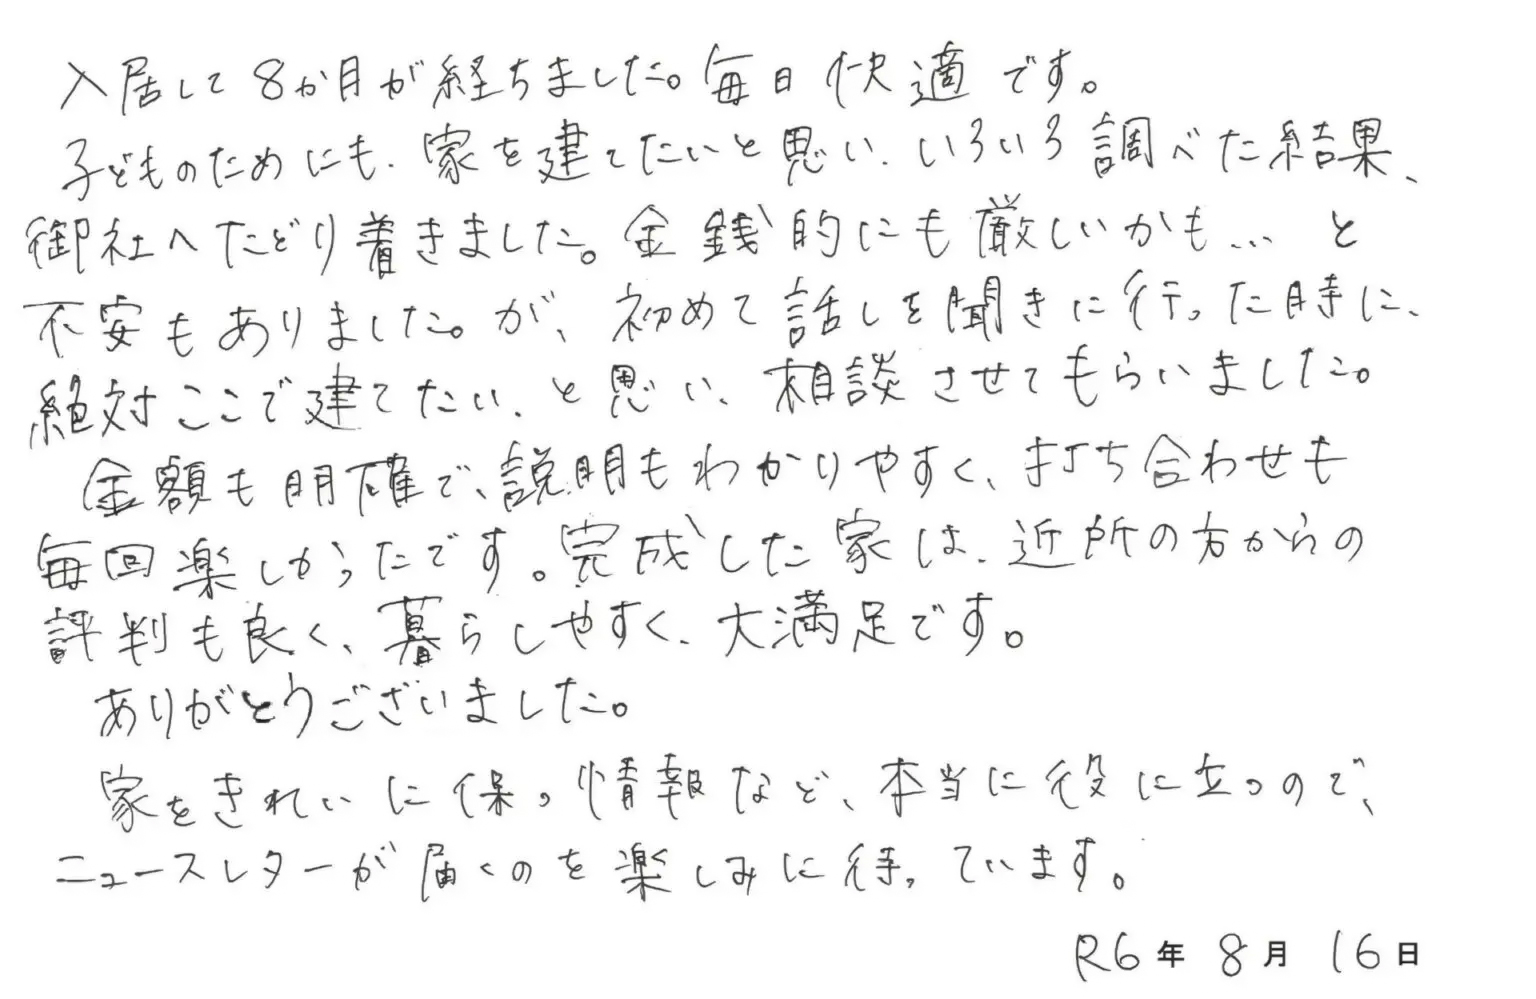 入居して8か月が経ちました。毎日快適です。
子どものためにも、家を建てたいと思い、いろいろ調べた結果、
御社へたどり着きました。金銭的にも厳しいかも… と
不安もありました。が、初めて話しを聞きに行った時に、
絶対ここで建てたい、と思い、相談させてもらいました。
金額も明確で、説明もわかりやすく、打ち合わせも
毎回楽しかったです。完成した家は、近所の方からの
評判も良く、暮らしやすく、大満足です。
ありがとうございました。
家をきれいに保つ情報など、本当に役に立つので、
ニュースレターが届くのを楽しみに待っています。
R6年 8月 16日